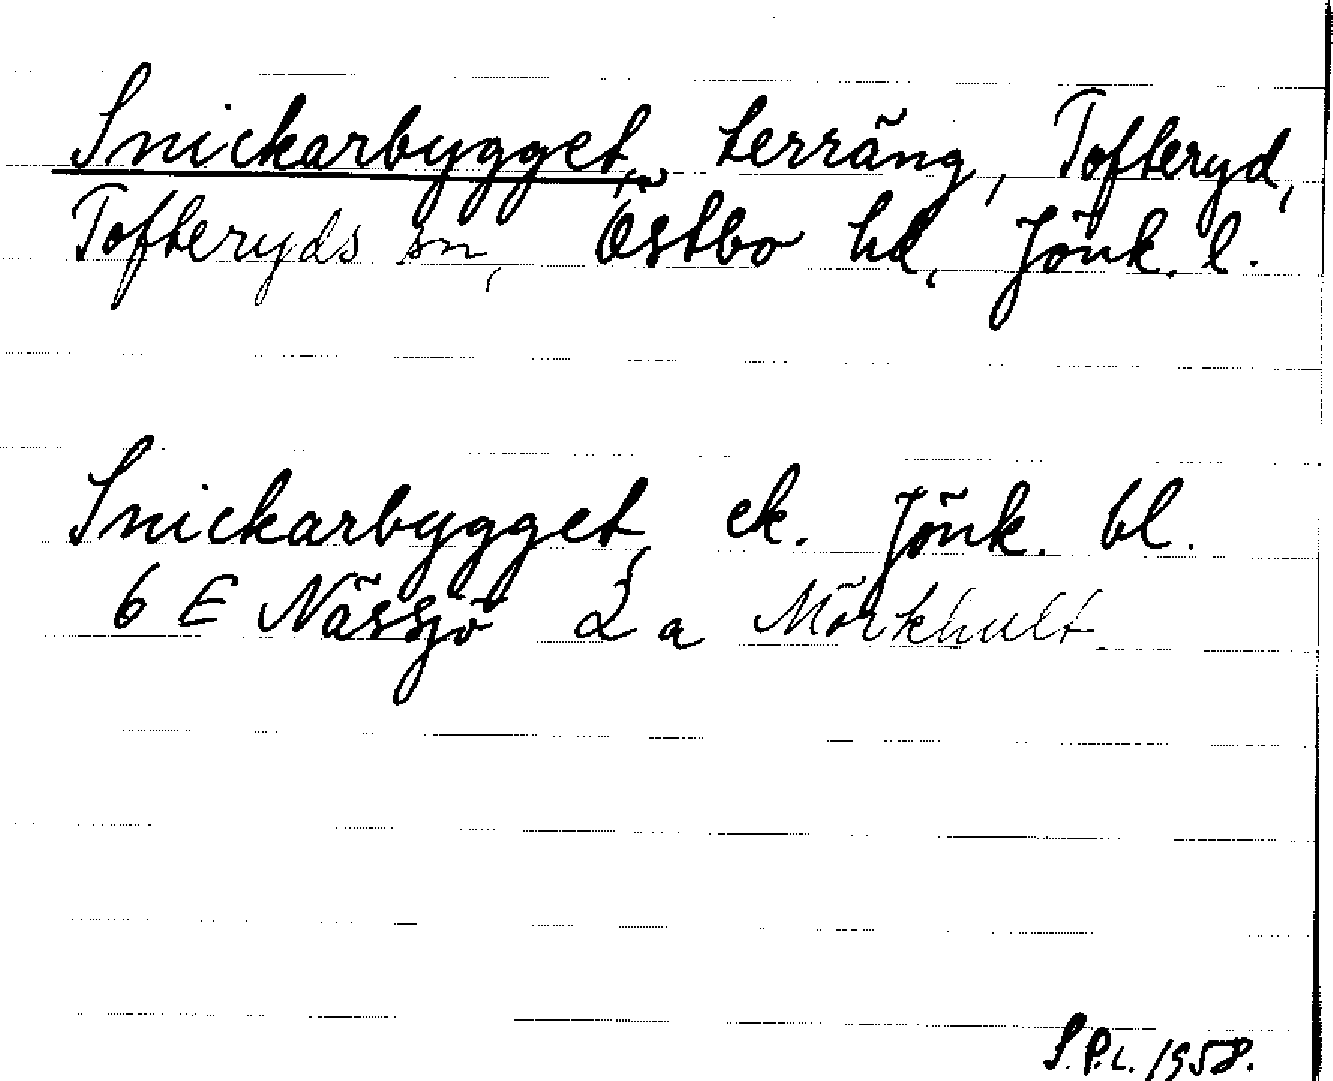 Snickarbygget, terräng, Tofteryd,
Tofteryds sn, Östbo hd, Jönk. l.
Snickarbygget, ek. Jönk. bl.
6 E Nässjö 2 a Mörkhult
S.P.L. 1958.